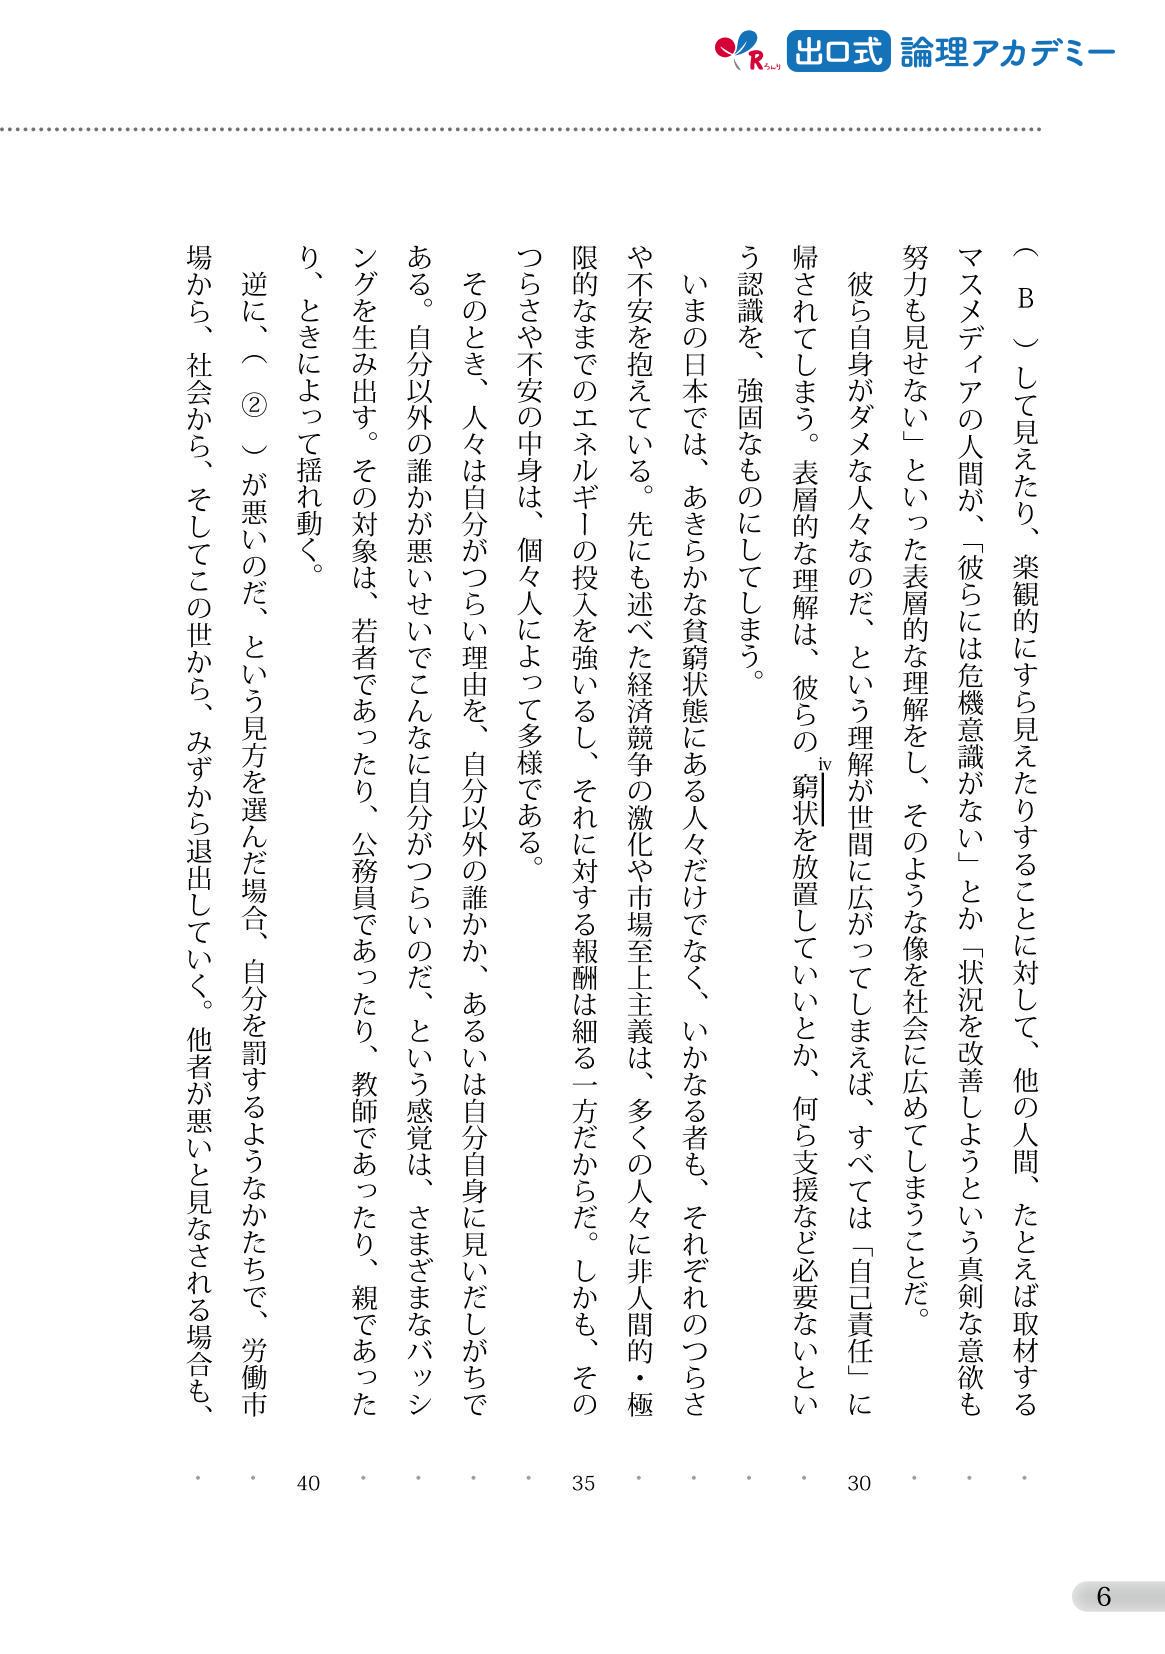 Rろんり 出口式 論理アカデミー
（　B　）して見えたり、楽観的にすら見えたりすることに対して、他の人間、たとえば取材する
マスメディアの人間が、「彼らには危機意識がない」とか「状況を改善しようという真剣な意欲も
努力も見せない」といった表層的な理解をし、そのような像を社会に広めてしまうことだ。
　彼ら自身がダメな人々なのだ、という理解が世間に広がってしまえば、すべては「自己責任」に
帰されてしまう。表層的な理解は、彼らのⅳ窮状を放置していいとか、何ら支援など必要ないとい
う認識を、強固なものにしてしまう。
　いまの日本では、あきらかな貧窮状態にある人々だけでなく、いかなる者も、それぞれのつらさ
や不安を抱えている。先にも述べた経済競争の激化や市場至上主義は、多くの人々に非人間的・極
限的なまでのエネルギーの投入を強いるし、それに対する報酬は細る一方だからだ。しかも、その
つらさや不安の中身は、個々人によって多様である。
　そのとき、人々は自分がつらい理由を、自分以外の誰かか、あるいは自分自身に見いだしがちで
ある。自分以外の誰かが悪いせいでこんなに自分がつらいのだ、という感覚は、さまざまなバッシ
ングを生み出す。その対象は、若者であったり、公務員であったり、教師であったり、親であった
り、ときによって揺れ動く。
　逆に、（　②　）が悪いのだ、という見方を選んだ場合、自分を罰するようなかたちで、労働市
場から、社会から、そしてこの世から、みずから退出していく。他者が悪いと見なされる場合も、
30
35
40
6